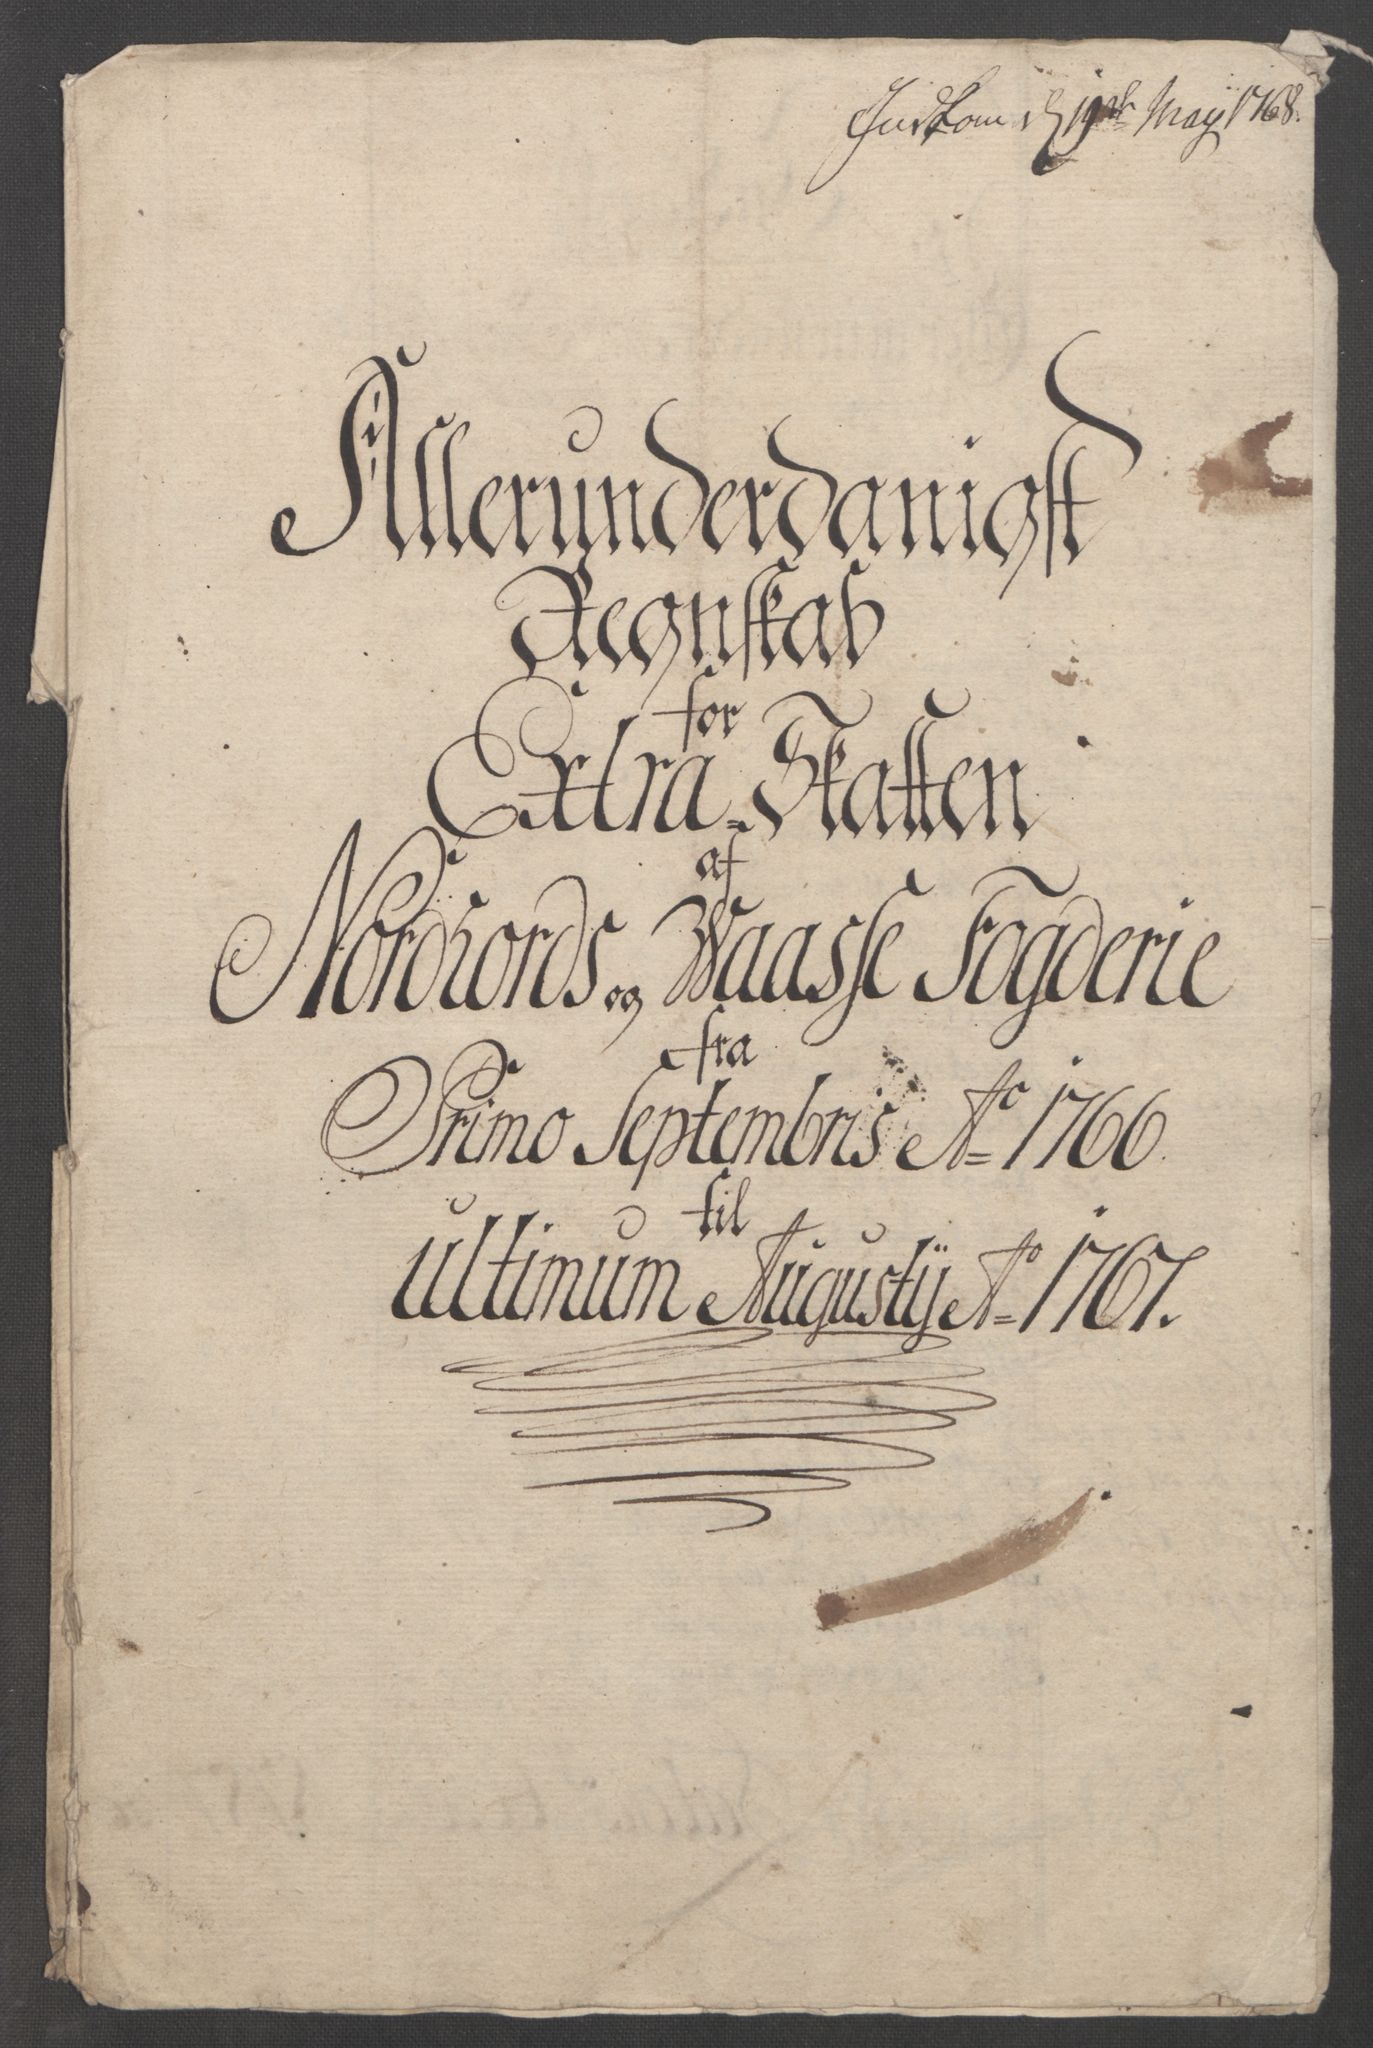 Indkom d 19de May 1768.
Allerunderdanigst
Regnskab
for
Extra-Skatten
af
Nordhords og Waasse Fogderie
fra
Primo Septembris Ao 1766.
til
ultimum Augustij Ao 1767.